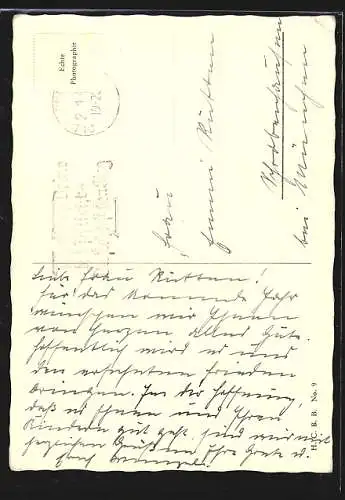 Echte
Photographie
Frau
Rütten
Schrobenhausen
bei München
Liebe Frau Rütten!
Für das kommende Jahr
wünschen wir Ihnen
von Herzen alles Gute.
Hoffentlich wird es uns
den ersehnten Frieden
bringen. In der Hoffnung,
daß es Ihnen und Ihren
Kindern gut geht, sind wir mit
herzlichen Grüßen Ihre Grete u.
H. C. B. B. No. 9